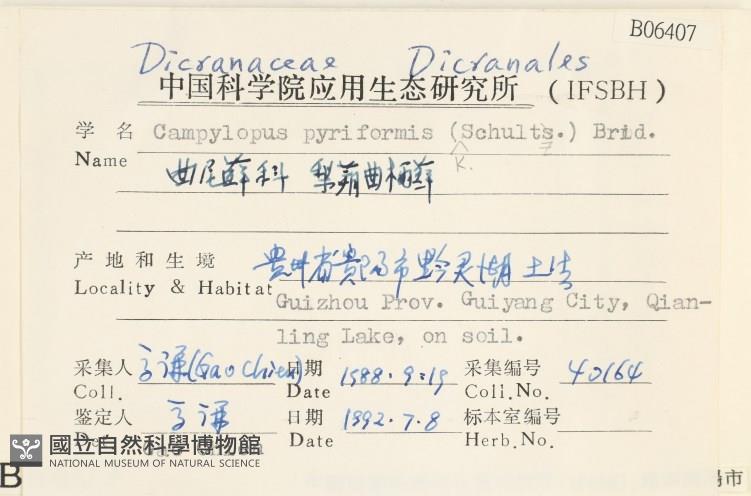 B06407
Dicranaceae Dicranales
中国科学院应用生态研究所 (IFSBH)
学名 Campylopus pyriformis (Schultz.) Brid.
Name K.
曲尾藓科 梨蒴曲柄藓
产地和生境 贵州省贵阳市黔灵湖 土生
Locality & Habitat Guizhou Prov. Guiyang City, Qian-
ling Lake, on soil.
采集人 高谦 (Gao Chien) 日期 1988.9.19 采集编号 40164
Coll. Date Coll.No.
鉴定人 高谦 日期 1992.7.8 标本室编号
Det. Gao Chien Date Herb.No.
國立自然科學博物館
NATIONAL MUSEUM OF NATURAL SCIENCE
B 市